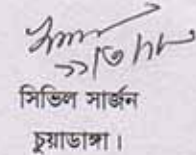 সিভিল সার্জন
চুয়াডাঙ্গা।